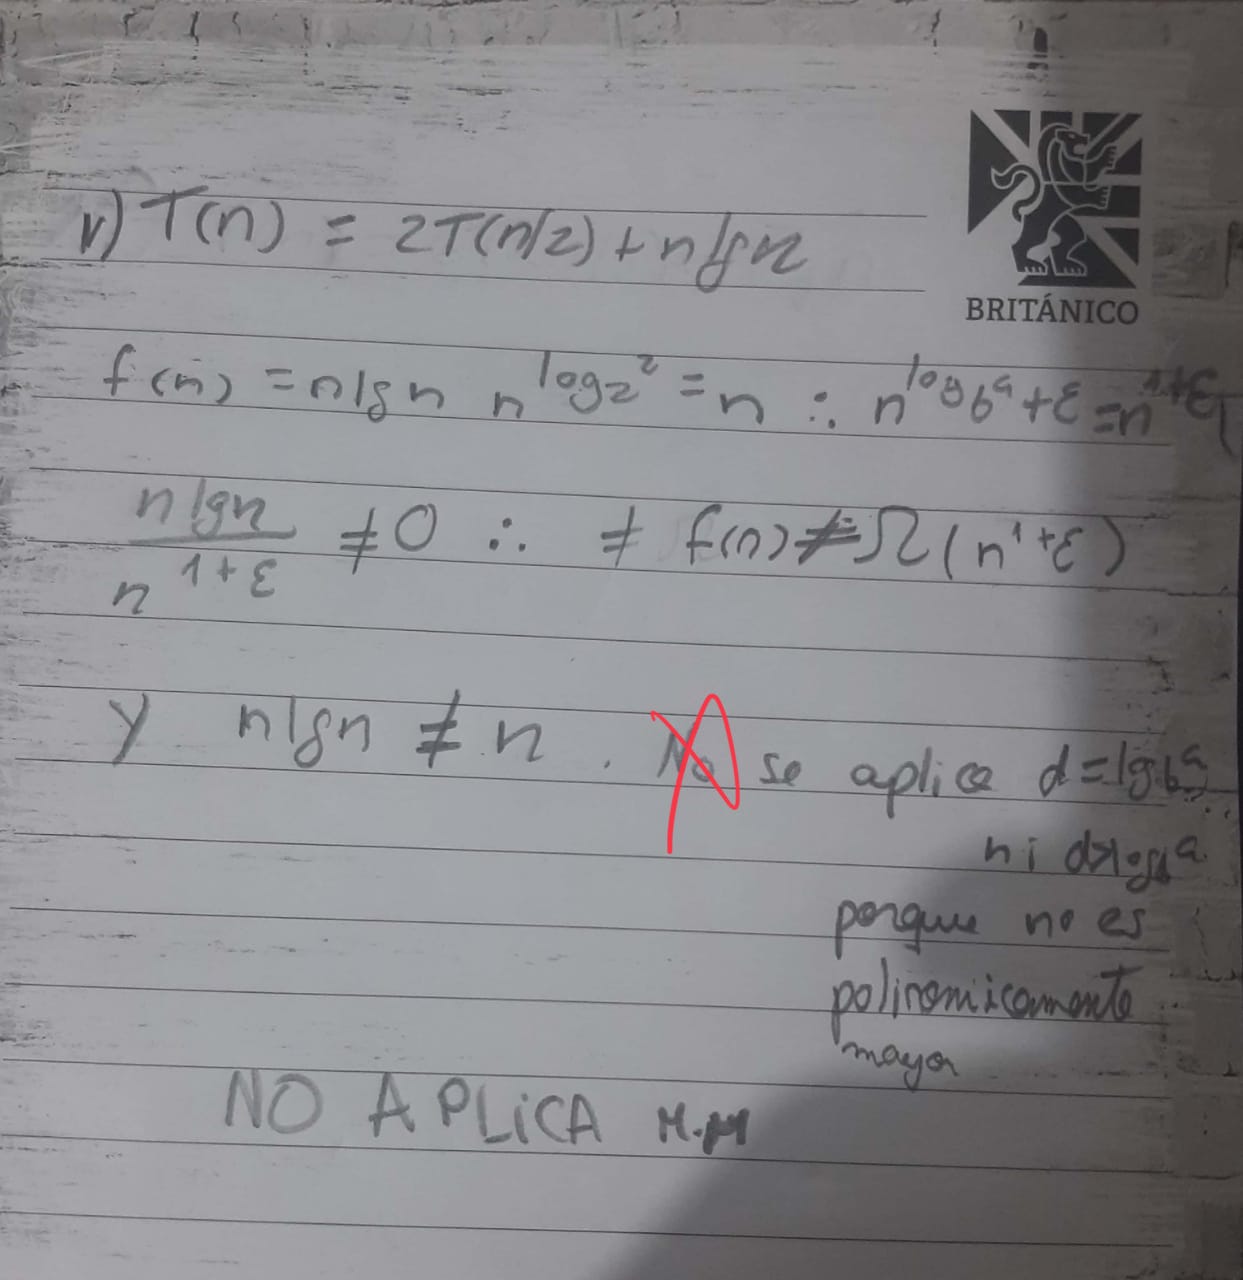 BRITÁNICO
v) T(n) = 2T(n/2) + n lg n
f(n) = n lg n n^log₂2 = n ∴ n^log_b a + ε = n^1+ε
n lg n / n^1+ε ≠ 0 ∴ ≠ f(n) ≠ Ω(n^1+ε)
y n lg n ≠ n . No se aplica d = lg_b a
ni d>log_b a
porque no es
polinomicamente
mayor
NO APLICA M.M